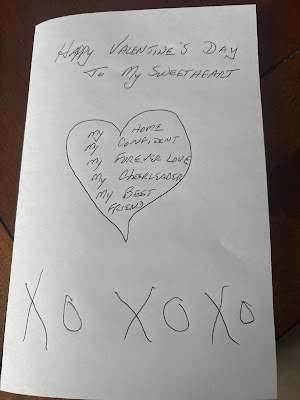 Happy Valentine's Day
To My Sweetheart
My Home
My Confident
My Forever Love
My Cheerleader
My Best
Friend
XO XO XO